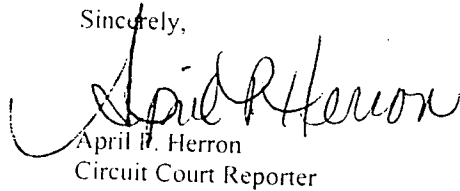 Sincerely,
April P Herron
April P. Herron
Circuit Court Reporter